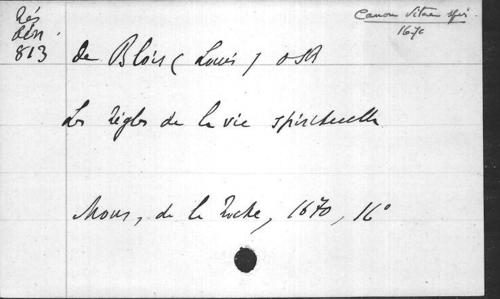 Rés
dén.
813
Canon Vitae spir.
1670
De Blois (Louis) OSB
Les Règles de la vie spirituelle
Mons, de la Roche, 1670, 16°